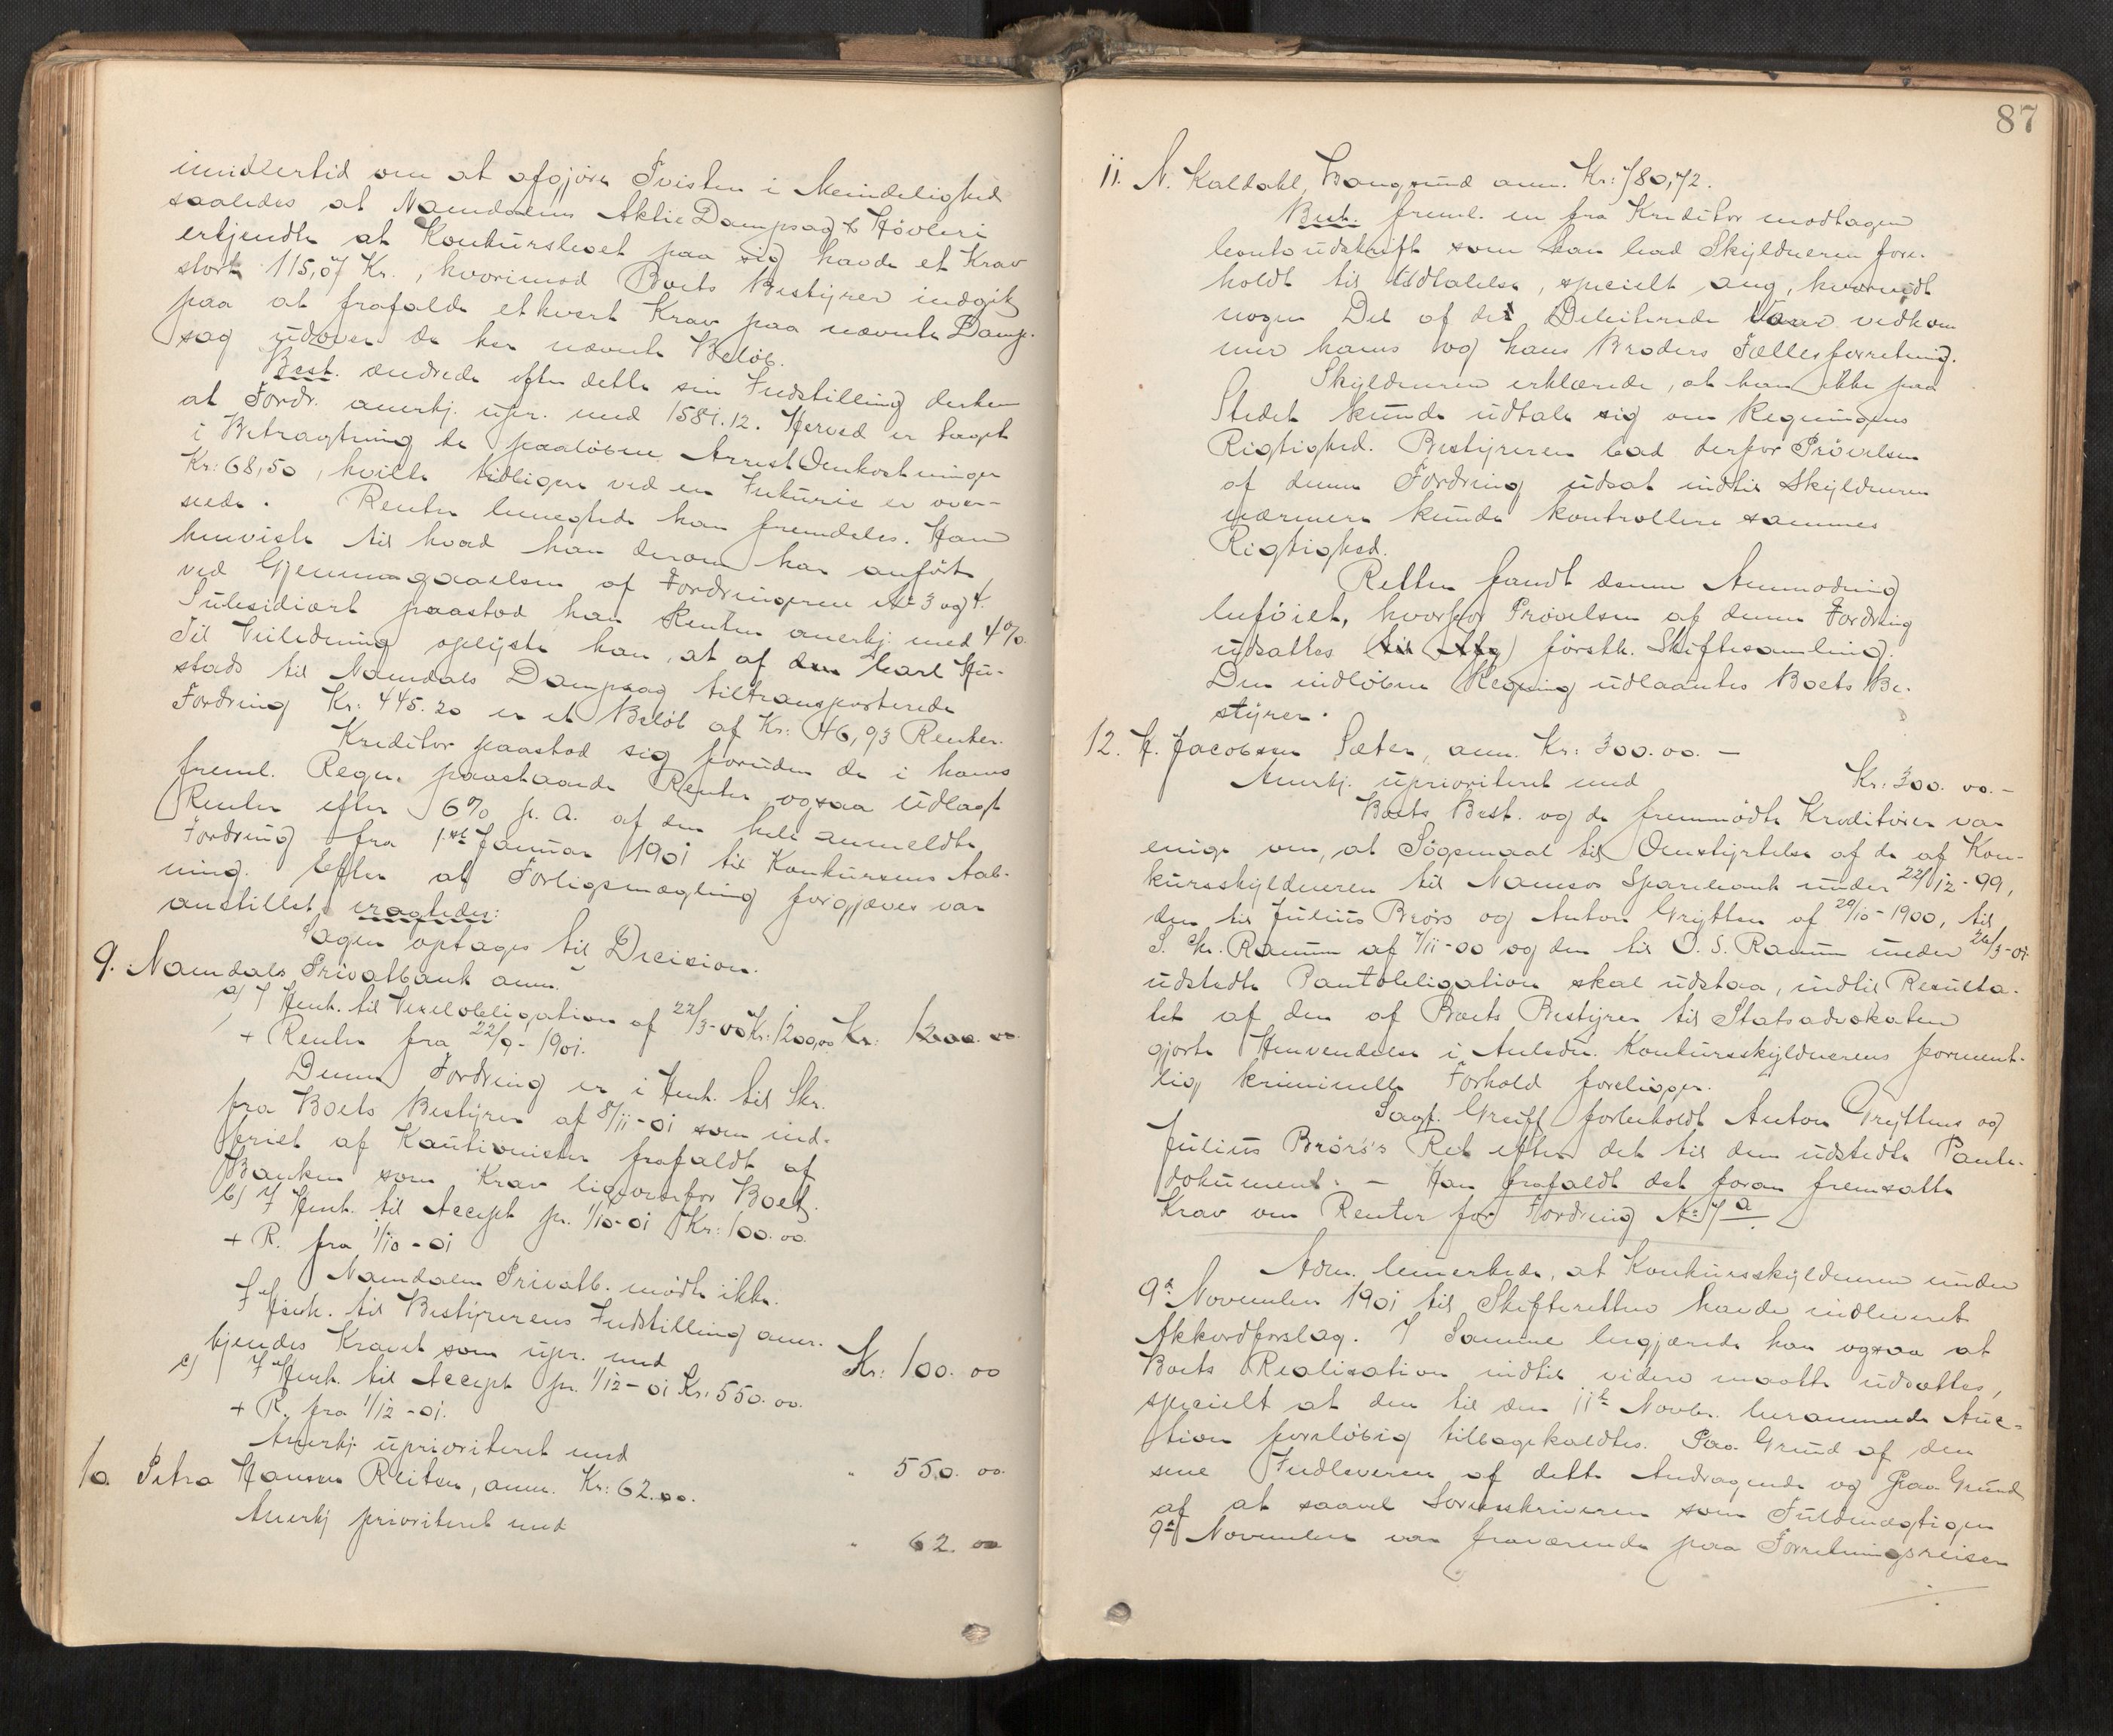 imidlertid om at afgjøre Tvisten i Mindelighed
saaledes at Namdalens Aktie Dampsag & Høvleri
erkjendte at Konkursboet paa sig havde et Krav
stort 115,07 Kr., hvorimod Boets Bestyrer indgik
paa at frafalde ethvert Krav paa nævnte Damp-
sag udover de her nævnte Beløb.
Best. ændrede efter dette sin Indstilling derhen
at Fordr. anerkj. upr. med 1581.12. Herved er taget
i Betragtning de paaløbne Arrest Omkostninger
Kr: 68,50, hvilke tidligere ved en Inkurie er over-
seede. Renter benegtede han fremdeles. Han
henviste til hvad han derom har anført
ved Gjennemgaaelsen af Fordringerne No 3 og 4.
Subsidiært paastod han Renten anerkj. med 4%.
Til Veiledning oplyste han, at af den Carl Hu-
stads til Namdals Dampsag tiltransporterede
Fordring Kr: 445.20 er et Beløb af Kr: 46,93 Renter.
Kreditor paastod sig foruden de i hans
freml. Regn. paastaaede Renter ogsaa udlagt
Renter efter 6% p. A. af den hele anmeldte
Fordring fra 1ste Januar 1901 til Konkursens Aab-
ning. Efter at Forligsmægling forgjæves var
anstillet, eragtedes:
Sagen optages til Decision.
9. Namdals Privatbank anm.
a) I Henh. til Vexelobligation af 22/3-00 Kr: 1200,00 Kr: 1200.00
+ Renter fra 22/9-1901.
Denne Fordring er i Henh. til Skr.
fra Boets Bestyrer af 8/11-01 som ind-
friet af Kautionister frafaldt af
Banken som Krav ligeoverfor Boet.
b) I Henh. til Accept pr. 1/10-01 Kr: 100.00
+ R. fra 1/10-01
Namdalen Privatb. mødte ikke.
I Henh. til Bestyrerens Indstilling aner-
kjendes Kravet som upr. med Kr: 100.00
c) I Henh. til Accept pr. 1/12-01 Kr: 550.00.
+ R. fra 1/12-01.
Anerkj. uprioriteret med " 550.00
10. Petra Hansen Reitan, anm. Kr: 62.00.
Anerkj prioriteret med " 62.00
87
11. N. Kaldahl, Bangsund anm. Kr: 780,72.
Best. freml. en fra Kreditor modtagen
Contoudskrift som han bad Skyldneren fore-
holdt til Udtalelse, specielt ang, hvorvidt
nogen Del af det Debiterede Varer vedkom
mer hans og hans Broders Fællesforretning.
Skyldneren erklærede, at han ikke paa
Stedet kunde udtale sig om Regningens
Rigtighed. Bestyreren bad derfor Prøvelsen
af denne Fordring udsat indtil Skyldneren
nærmere kunde kontrollere sammes
Rigtighed.
Retten fandt denne Anmodning
beføiet, hvorfor Prøvelsen af denne Fordring
udsattes førstk. Skiftesamling.
Den indløbne Regning udlaantes Boets Be-
styrer.
12. H. Jacobsen Sæter, anm. Kr: 300.00. -
Anerkj. uprioriteret med Kr: 300.00. -
Boets Best. og de fremmødte Kreditorer var
enige om, at Søgsmaal til Omstyrtelse af de af Kon-
kursskyldneren til Namsos Sparebank under 22/12-99,
den til Julius Brørs og Anton Grytten af 29/10-1900, til
S. Chr. Ranum af 7/11-00 og den til O. S. Ranum under 26/3-01
udstedte Pantobligation skal udstaa, indtil Resulta-
tet af den af Boets Bestyrer til Statsadvokaten
gjorte Henvendelse i Anledn. Konkursskyldnerens forment-
lig kriminelle Forhold foreligger.
Sagf. Greiff forbeholdt Anton Gryttens og
Julius Brørs's Ret efter det til dem udstedte Pante-
dokument. - Han frafaldt det foran fremsatte
Krav om Renter for Fordring No 7 a.
Adm. bemerkede, at Konkursskyldneren under
9de November 1901 til Skifteretten havde indleveret
Akkordforslag. I Samme begjærede han ogsaa at
Boets Realisation indtil videre maatte udsættes,
specielt at den til den 11te Novbr. berammede Auc-
tion foreløbig tilbagekaldtes. Paa Grund af den
sene Indleveren af dette Andragende og paa Grund
af at saavel Sorenskriveren som Fuldmægtigen
9de November var fraværende paa Forretningsreiser